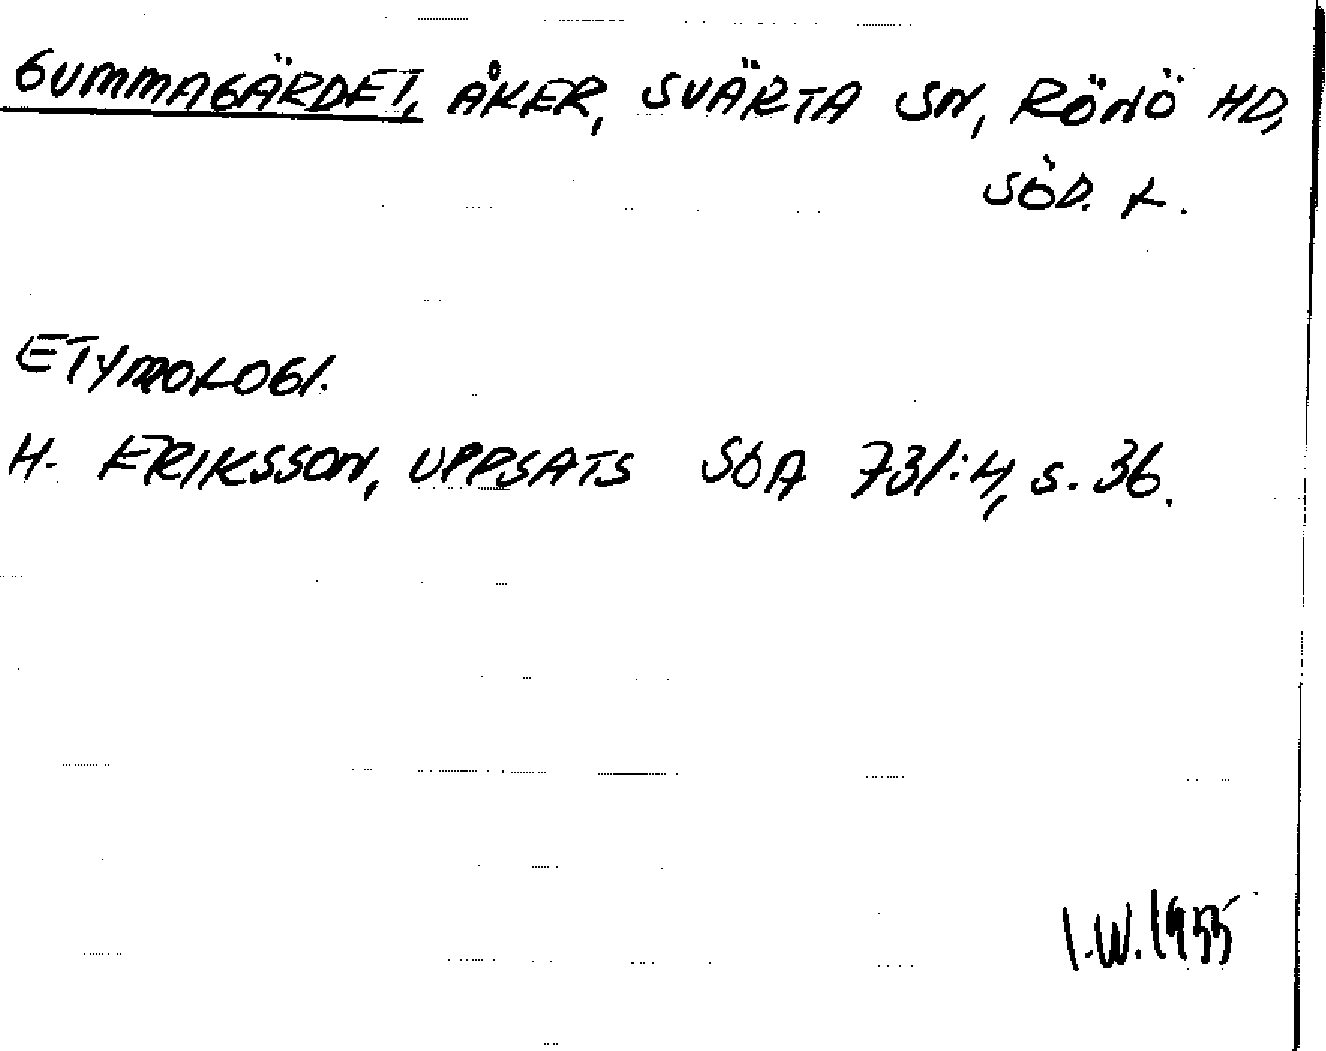 GUMMAGÄRDET, ÅKER, SVÄRTA SN, RÖNÖ HD,
SÖD. L.
ETYMOLOGI.
H. ERIKSSON, UPPSATS SOA 731:4, s. 36.
I.W. 1955